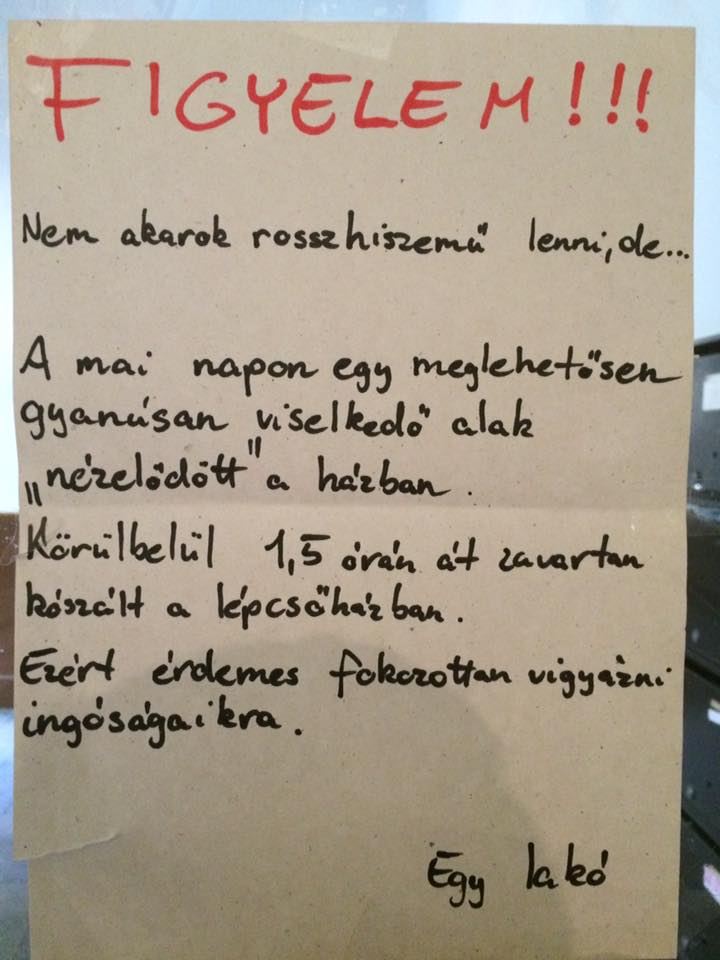 FIGYELEM!!!
Nem akarok rosszhiszemű lenni, de...
A mai napon egy meglehetősen
gyanúsan viselkedő alak
„nézelődött" a házban.
Körülbelül 1,5 órán át zavartan
kószált a lépcsőházban.
Ezért érdemes fokozottan vigyázni
ingóságaikra.
Egy lakó